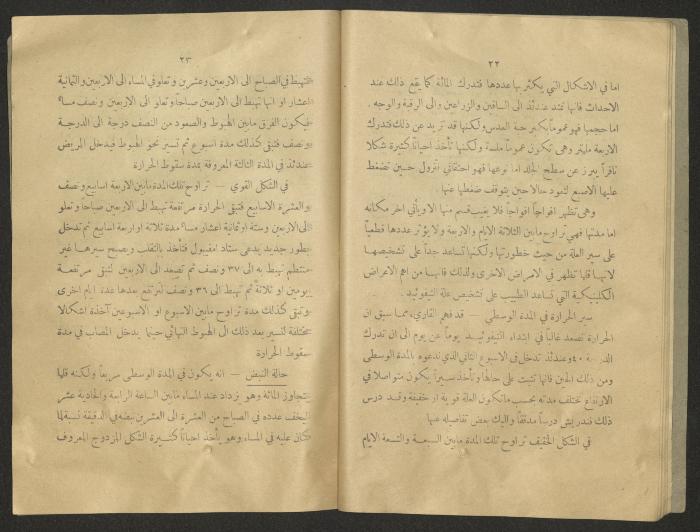 ٢٢
اما في الاشكال التي يكثر بها عددها فتدرك المائة كما يقع ذلك عند
الاحداث فانها تمتد عندئذ الى الساقين والزراعين والى الرقبة والوجه .
اما حجمها فهو عموماً بكبر حبة العدس ولكنها قد تزيد عن ذلك فتدرك
الاربعة مليتر وهي تكون عموماً ملسة ولكنها تأخذ احياناً كثيرة شكلا
نافراً يبرز عن سطح الجلد اما نوعها فهو احتقاني اتزول حين تضغط
عليها الاصبع لتعود حالا حين يتوقف ضغطها عنها .
وهي تظهر افواجاً افواجاً فلا يغيب قسم منها الا ويأتي اخر مكانه
اما مدتها فهي تراوح مابين الثلاثة الايام والاربعة ولا يؤثر عددها قطعياً
على سير العلة من حيث خطورتها ولكنها تساعد جداً على تشخيصها
لانها قلما تظهر في الامراض الاخرى ولذلك فانها من اهم الاعراض
الكلينيكية التي تساعد الطبيب على تشخيص علة التيفوئيد .
سير الحرارة في المدة الوسطى — قد فهم القاري، مما سبق ان
الحرارة تصعد غالباً في ابتداء التيفوئيد يوماً عن يوم الى ان تدرك
الدرجة ٤٠ وعندئذ تدخل في الاسبوع الثاني الذي ندعوه بالمدة الوسطى
ومن ذلك الحين فانها تثبت على حالها وتأخذ سيراً يكون متواصلا في
الارتفاع تختلف مدته بحسب ماتكون العلة قوية او خفيفة وقد درس
ذلك فندريش درساً مدققاً واليك بعض تفاصيله عنها
في الشكل الخفيف تراوح تلك المدة مابين السبعة والتسعة الايام
٢٣
فتهبط في الصباح الى الاربعين وعشرين وتعلو في المساء الى الاربعين والثمانية
اعشار او انها تهبط الى الاربعين صباحاً وتعلو الى الاربعين ونصف مساءً
فيكون الفرق مابين الهبوط والصعود من النصف درجة الى الدرجة
ونصف فتبقى كذلك مدة اسبوع ثم تسير نحو الهبوط فيدخل المريض
عندئذ في المدة الثالثة المعروفة بمدة سقوط الحرارة
في الشكل القوي — تراوح تلك المدة مابين الاربعة اسابيع ونصف
والعشرة الاسابيع فتبقى الحرارة مرتفعة تهبط الى الاربعين صباحاً وتعلو
الى الاربعين وستة او ثمانية اعشار مساءً مدة ثلاثة او اربعة اسابيع ثم تدخل
بطور جديد يدعى ستاد امفيبول فتأخذ بالتقلب ويصبح سيرها غير
منتظم تهبط به الى ٣٧ ونصف ثم تصعد الى الاربعين لتبقى مرتفعة
يومين او ثلاثة ثم تهبط الى ٣٦ ونصف لترتفع بعدها عدة ايام اخرى
وتبقى كذلك مدة تراوح مابين الاسبوع او الاسبوعين آخذة اشكالا
مختلفة لتسير بعد ذلك الى الهبوط النهائي حينما يدخل المصاب في مدة
سقوط الحرارة
حالة النبض — انه يكون في المدة الوسطى سريعاً ولكنه قلما
يتجاوز المائة وهو يزداد عند المساء مابين الساعة الرابعة والحادية عشر
ليخف عدده في الصباح من العشرة الى العشرين نبضه في الدقيقة نسبة لما
كان عليه في المساء وهو يأخذ احياناً كثيرة الشكل المزدوج المعروف